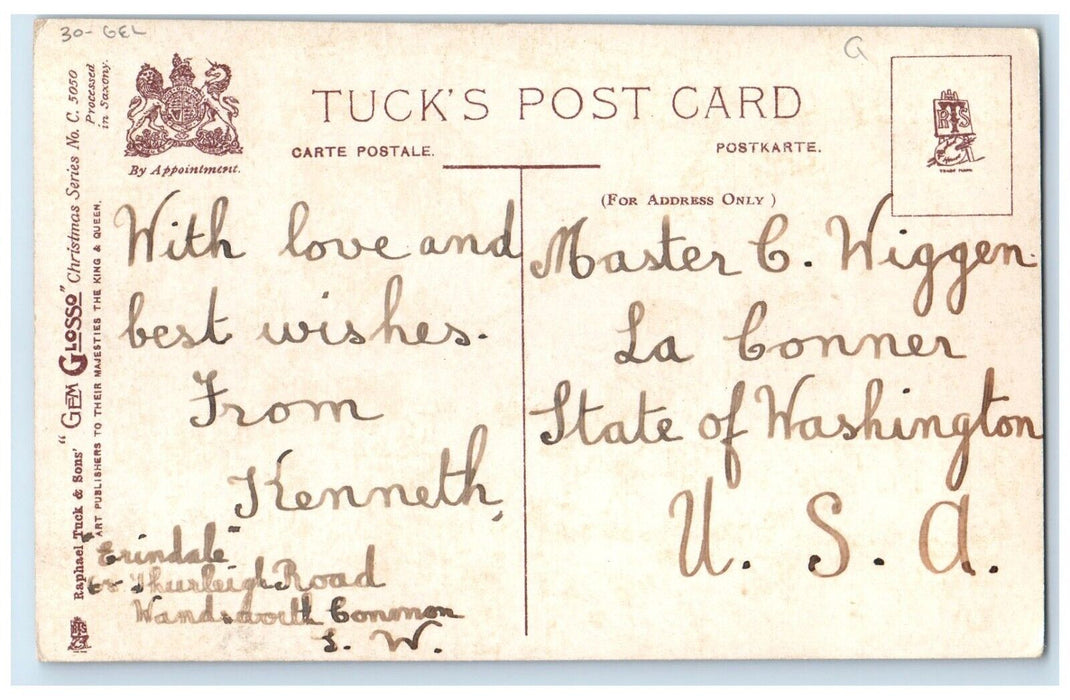 30- GEL
G
Raphael Tuck & Sons' "GEM GLOSSO" Christmas Series No. C. 5050
Processed
in Saxony.
ART PUBLISHERS TO THEIR MAJESTIES THE KING & QUEEN.
By Appointment.
TUCK'S POST CARD
CARTE POSTALE.
POSTKARTE.
(FOR ADDRESS ONLY)
RTS
TRADE MARK
With love and
best wishes.
From
Kenneth,
"Erindale"
Thurleigh Road
Wandsworth Common
S. W.
Master C. Wiggen.
La Conner
State of Washington
U. S. A.